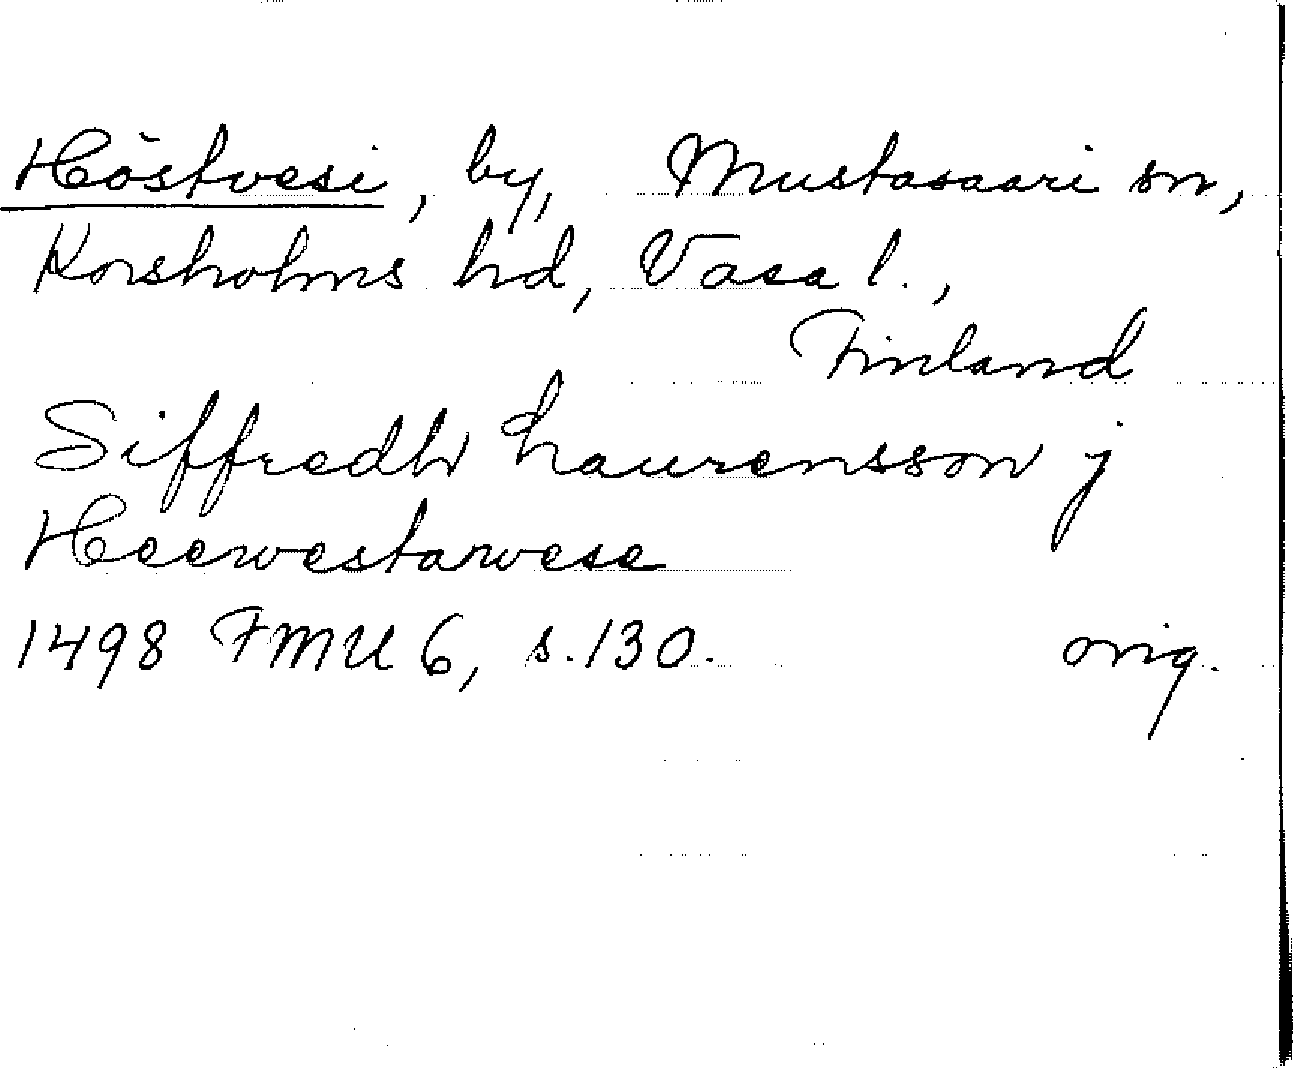 Höstvesi, by, Mustasaari sn,
Korsholms hd, Vasa l.,
Finland
Siffredh Laurensson j
Heewestarwese
1498 FMU 6, s. 130. orig.